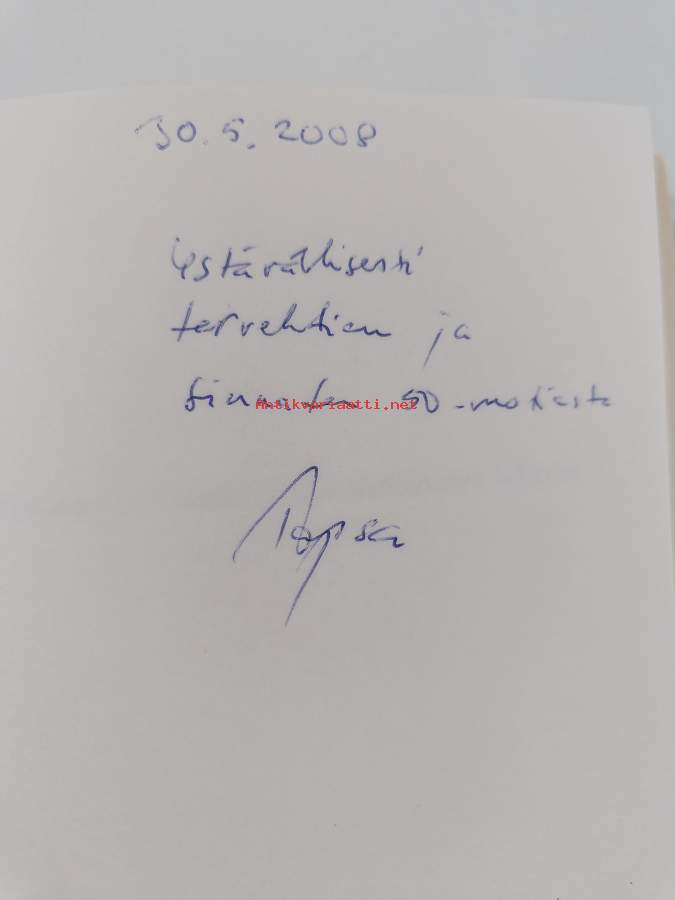 30.5.2008
ystävällisesti
tervehtien ja
50-
Antikvariaatti.net
Topsa